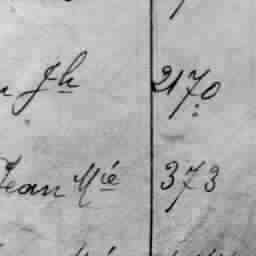 Jh 2170
Jean Mie 373